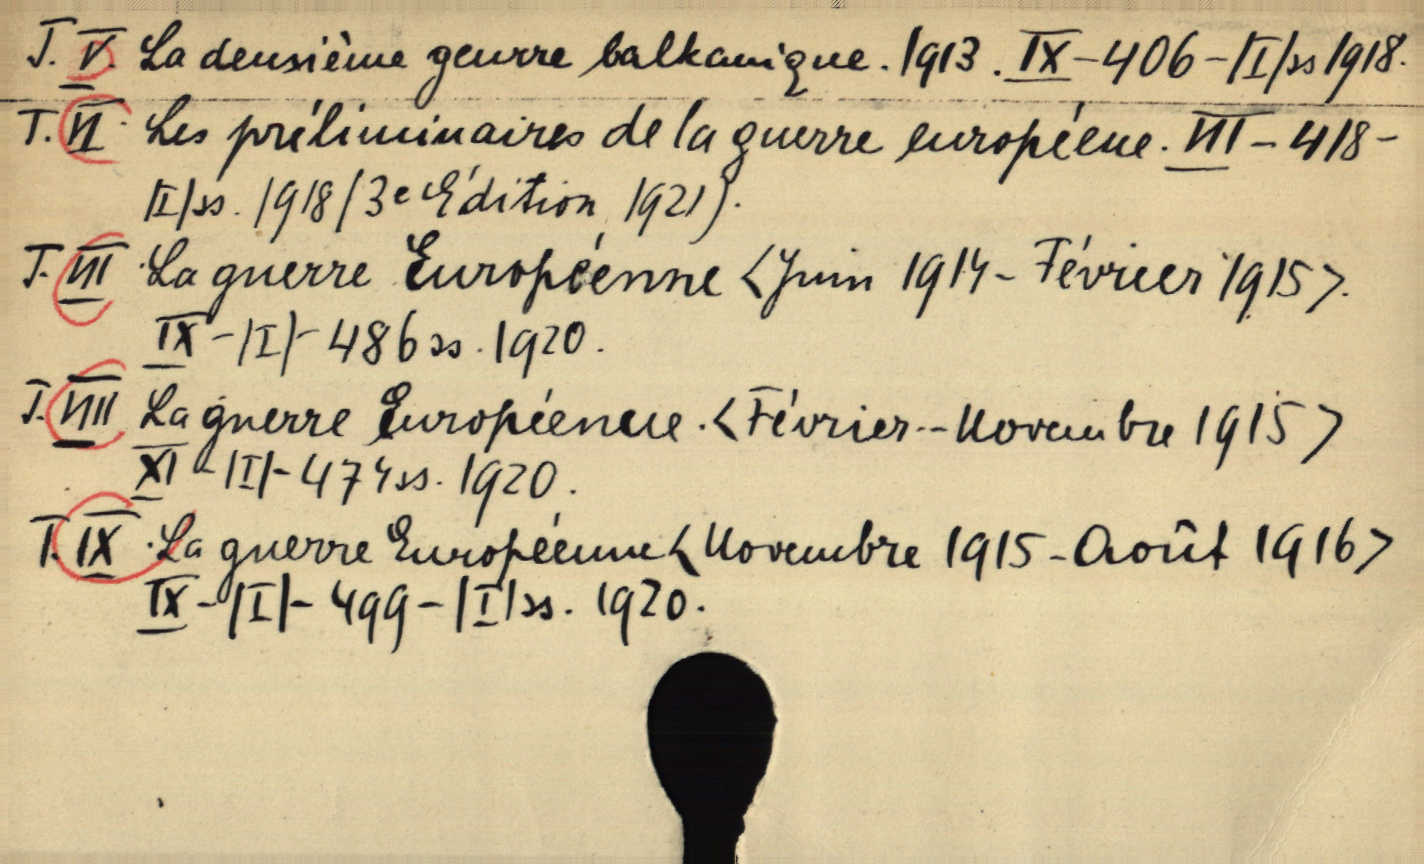 T. V. La deuxième geurre balkanique. 1913. IX-406-/I/ss 1918.
T. VI. Les préliminaires de la guerre européene. VII-418-
/I/ss. 1918 (3e Edition 1921).
T. VII. La guerre Européenne <Juin 1914-Février 1915>.
IX-/I/-486ss. 1920.
T. VIII. La guerre Européenne. <Février--Novembre 1915>
XI-/I/-474ss. 1920.
T. IX. La guerre Européenne <Novembre 1915-Août 1916>
IX-/I/-499-/I/ss. 1920.